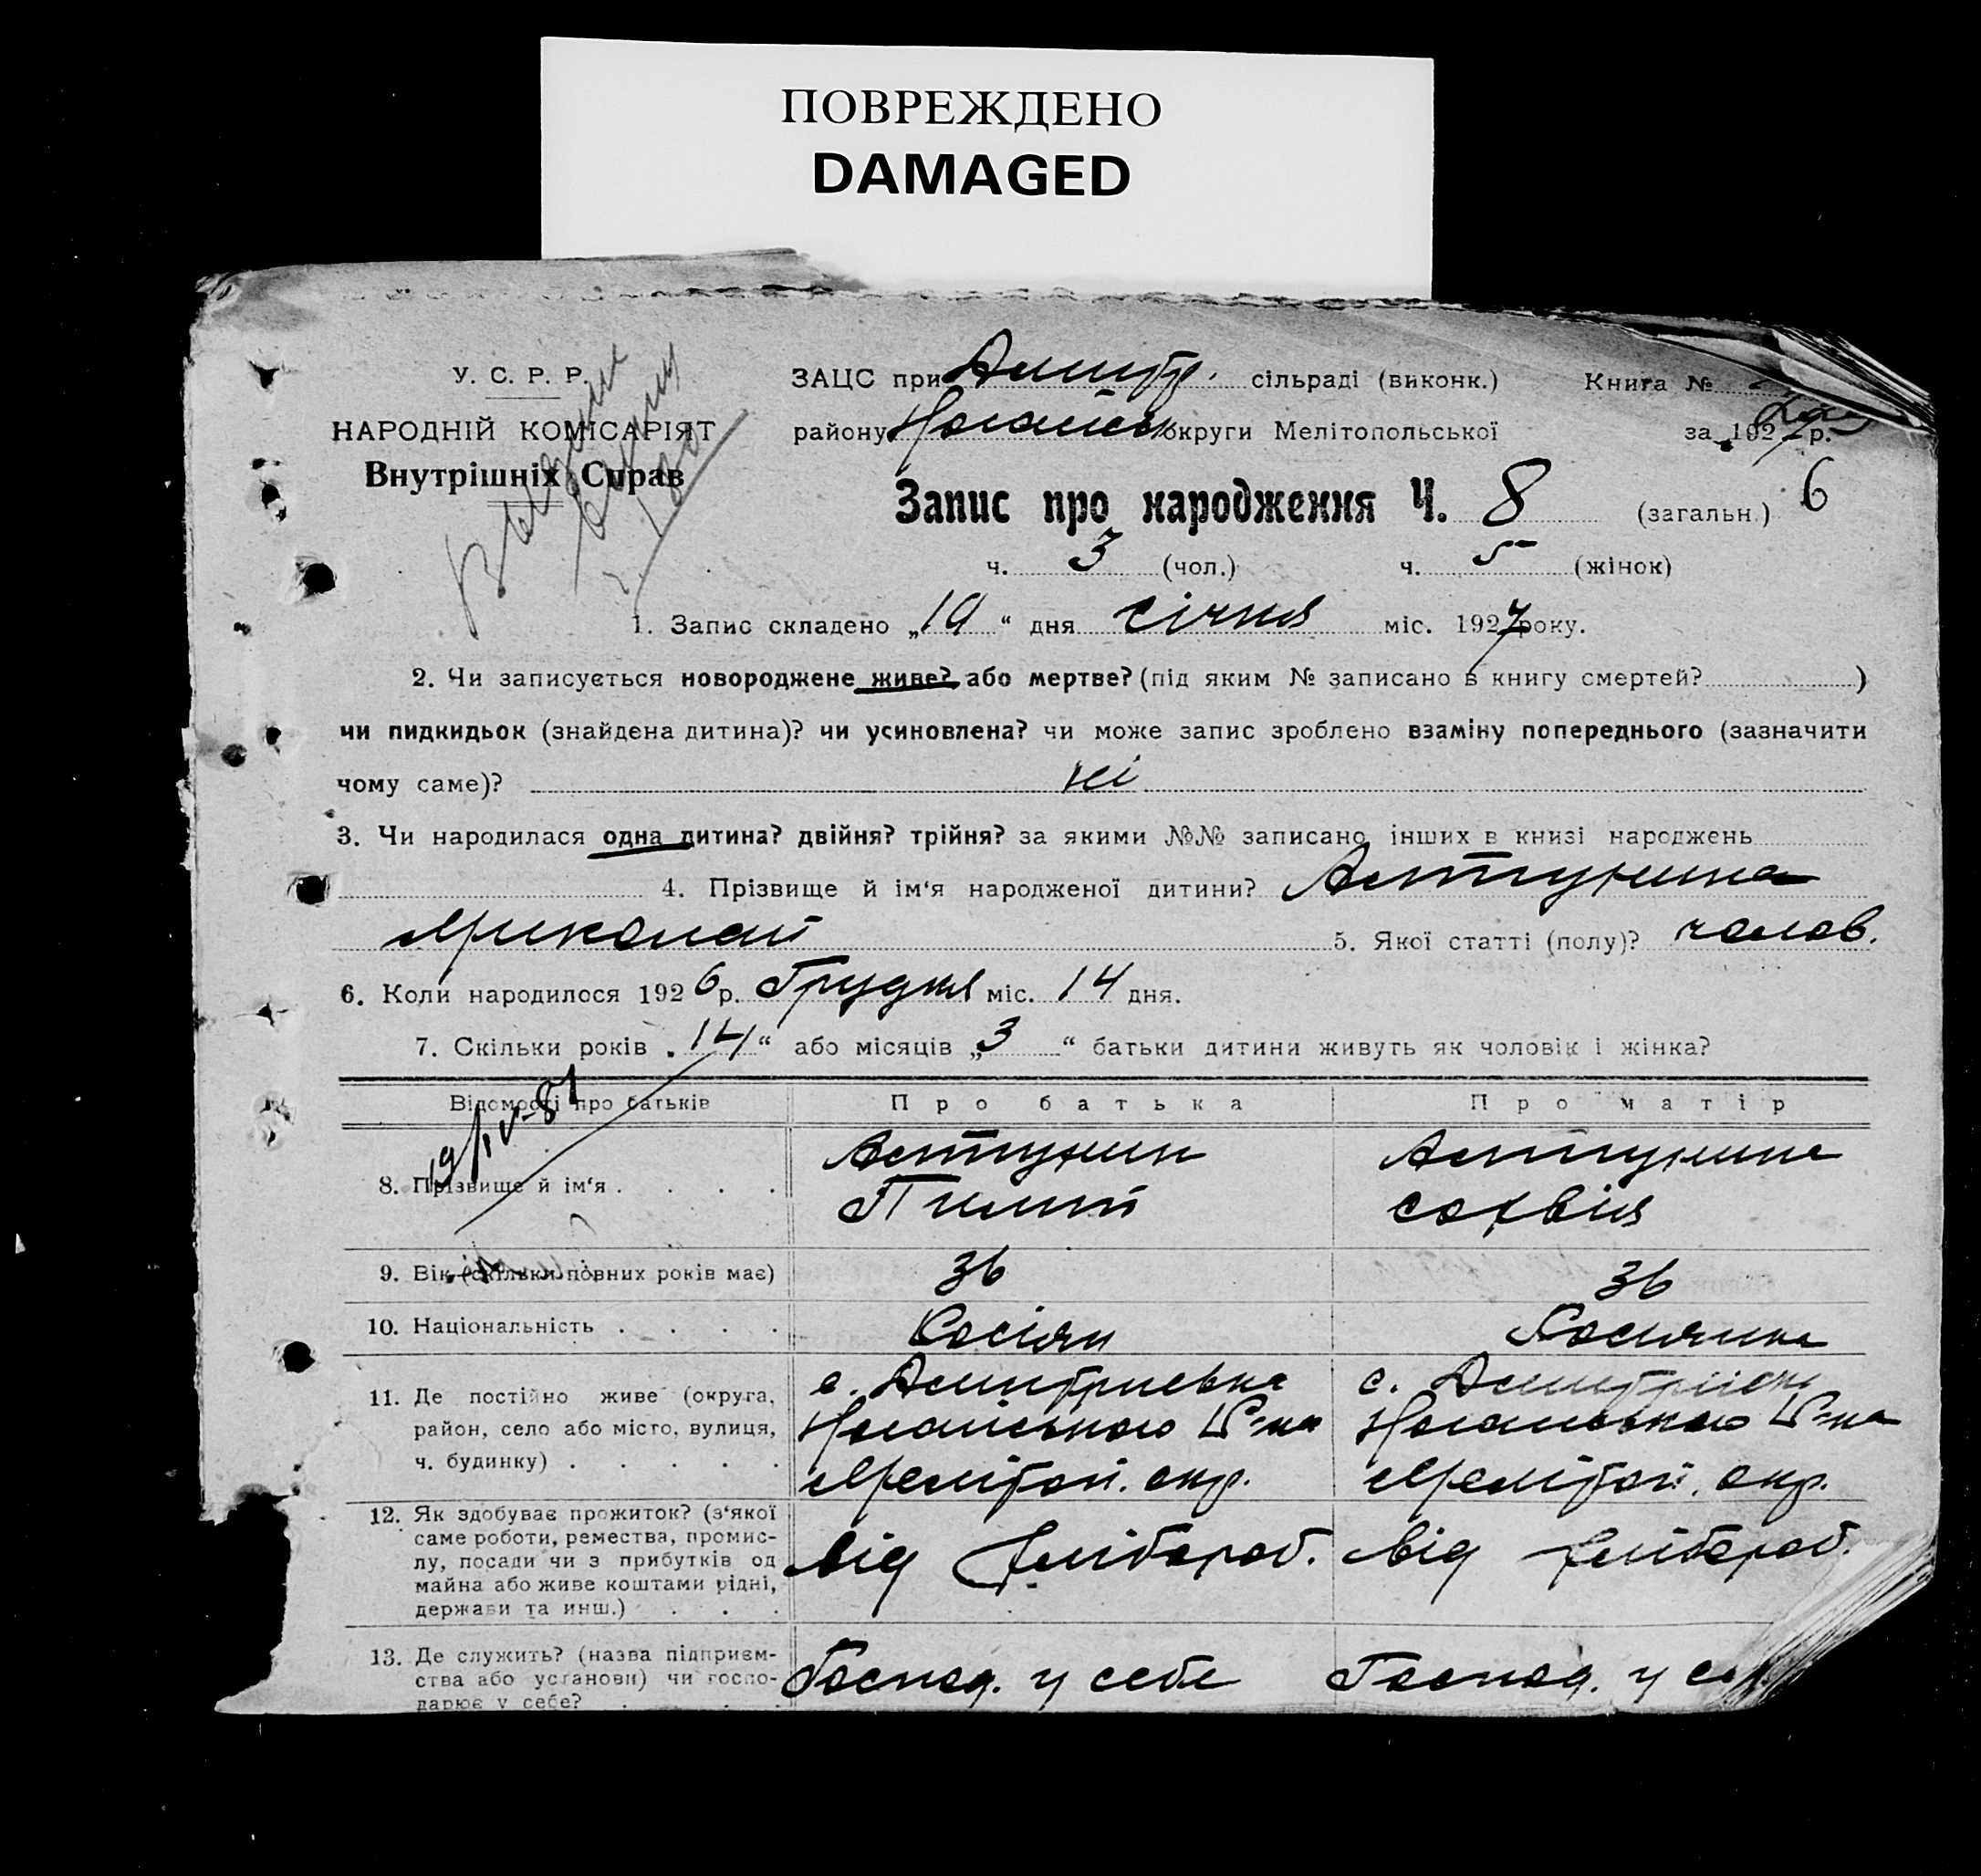 ПОВРЕЖДЕНО
DAMAGED
У. С. Р. Р.
НАРОДНІЙ КОМІСАРІЯТ
Внутрішніх Справ
ЗАЦС при Дмитр. сільраді (виконк.) Книга №
району Ногайськ округи Мелітопольської за 1927 р.
Запис про народження Ч. 8 (загальн.) 6
ч. 3 (чол.) ч. 5 (жінок)
1. Запис складено „19“ дня січня міс. 1927 року.
2. Чи записується новороджене живе? або мертве? (під яким № записано в книгу смертей? )
чи пидкидьок (знайдена дитина)? чи усиновлена? чи може запис зроблено взаміну попереднього (зазначити
чому саме)? ні
3. Чи народилася одна дитина? двійня? трійня? за якими №№ записано інших в книзі народжень
4. Прізвище й ім‘я народженої дитини?
Миколай 5. Якої статті (полу)? чолов.
6. Коли народилося 1926 р. Грудня міс. 14 дня.
7. Скільки років „14“ або місяців „3“ батьки дитини живуть як чоловік і жінка?
Відомості про батьків Про батька Про матір
19/IV-81
8. Прізвище й ім‘я . . . .
Пилип Софвія
9. Вік (скільки повних років має) 36 36
10. Національність . . . . Росіян Росиянка
11. Де постійно живе (округа, с. Дмитриевка с.
район, село або місто, вулиця, Ногайського Р-на Ногайського Р-на
ч. будинку) . . . . . Мелітоп. окр. Мелітоп. окр.
12. Як здобуває прожиток? (з‘якої
саме роботи, ремества, промис-
лу, посади чи з прибутків од від хлібороб. від хлібороб.
майна або живе коштами рідні,
держави та инш.) . . .
13. Де служить? (назва підприєм-
ства або установи) чи госпо- Господ. у себе Господ. у
дарює у себе? . . . .